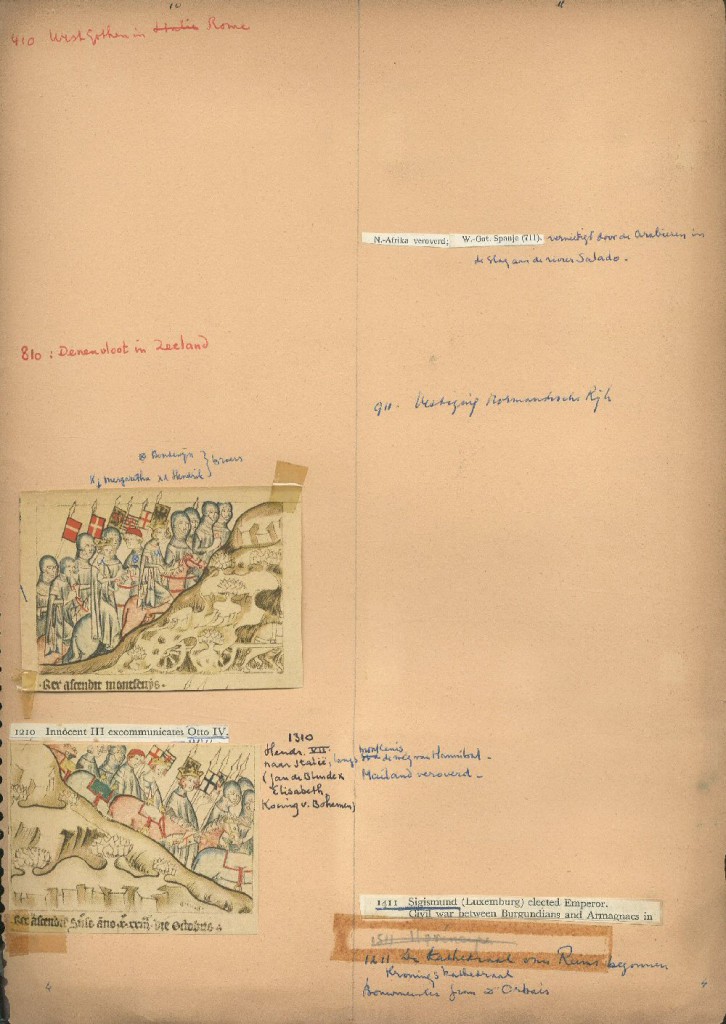 10
11
410 West Gothen in Italië Rome
N.-Afrika veroverd; W.-Got. Spanje (711). vernietigd door de Arabieren in
de slag aan de rivier Salado.
810 : Denenvloot in Zeeland
911. Vestiging Normandische Rijk
Boudewijn
broers
Margaretha Hendrik
Rex ascendit montsenys
1210 Innocent III excommunicates Otto IV.
1310
Hendr. VII
naar Italië, langs de weg van Hannibal.
montcenis
(Jan de Blinde x
Elisabeth
Koning v. Bohemen)
Mailand veroverd.
Rex ascendit
die Octobris
1411 Sigismund (Luxemburg) elected Emperor.
Civil war between Burgundians and Armagnacs in
1511
1211 De Kathedraal van Reims begonnen
Kronings kathedraal
Bouwmeester Jean d'Orbais
4
4